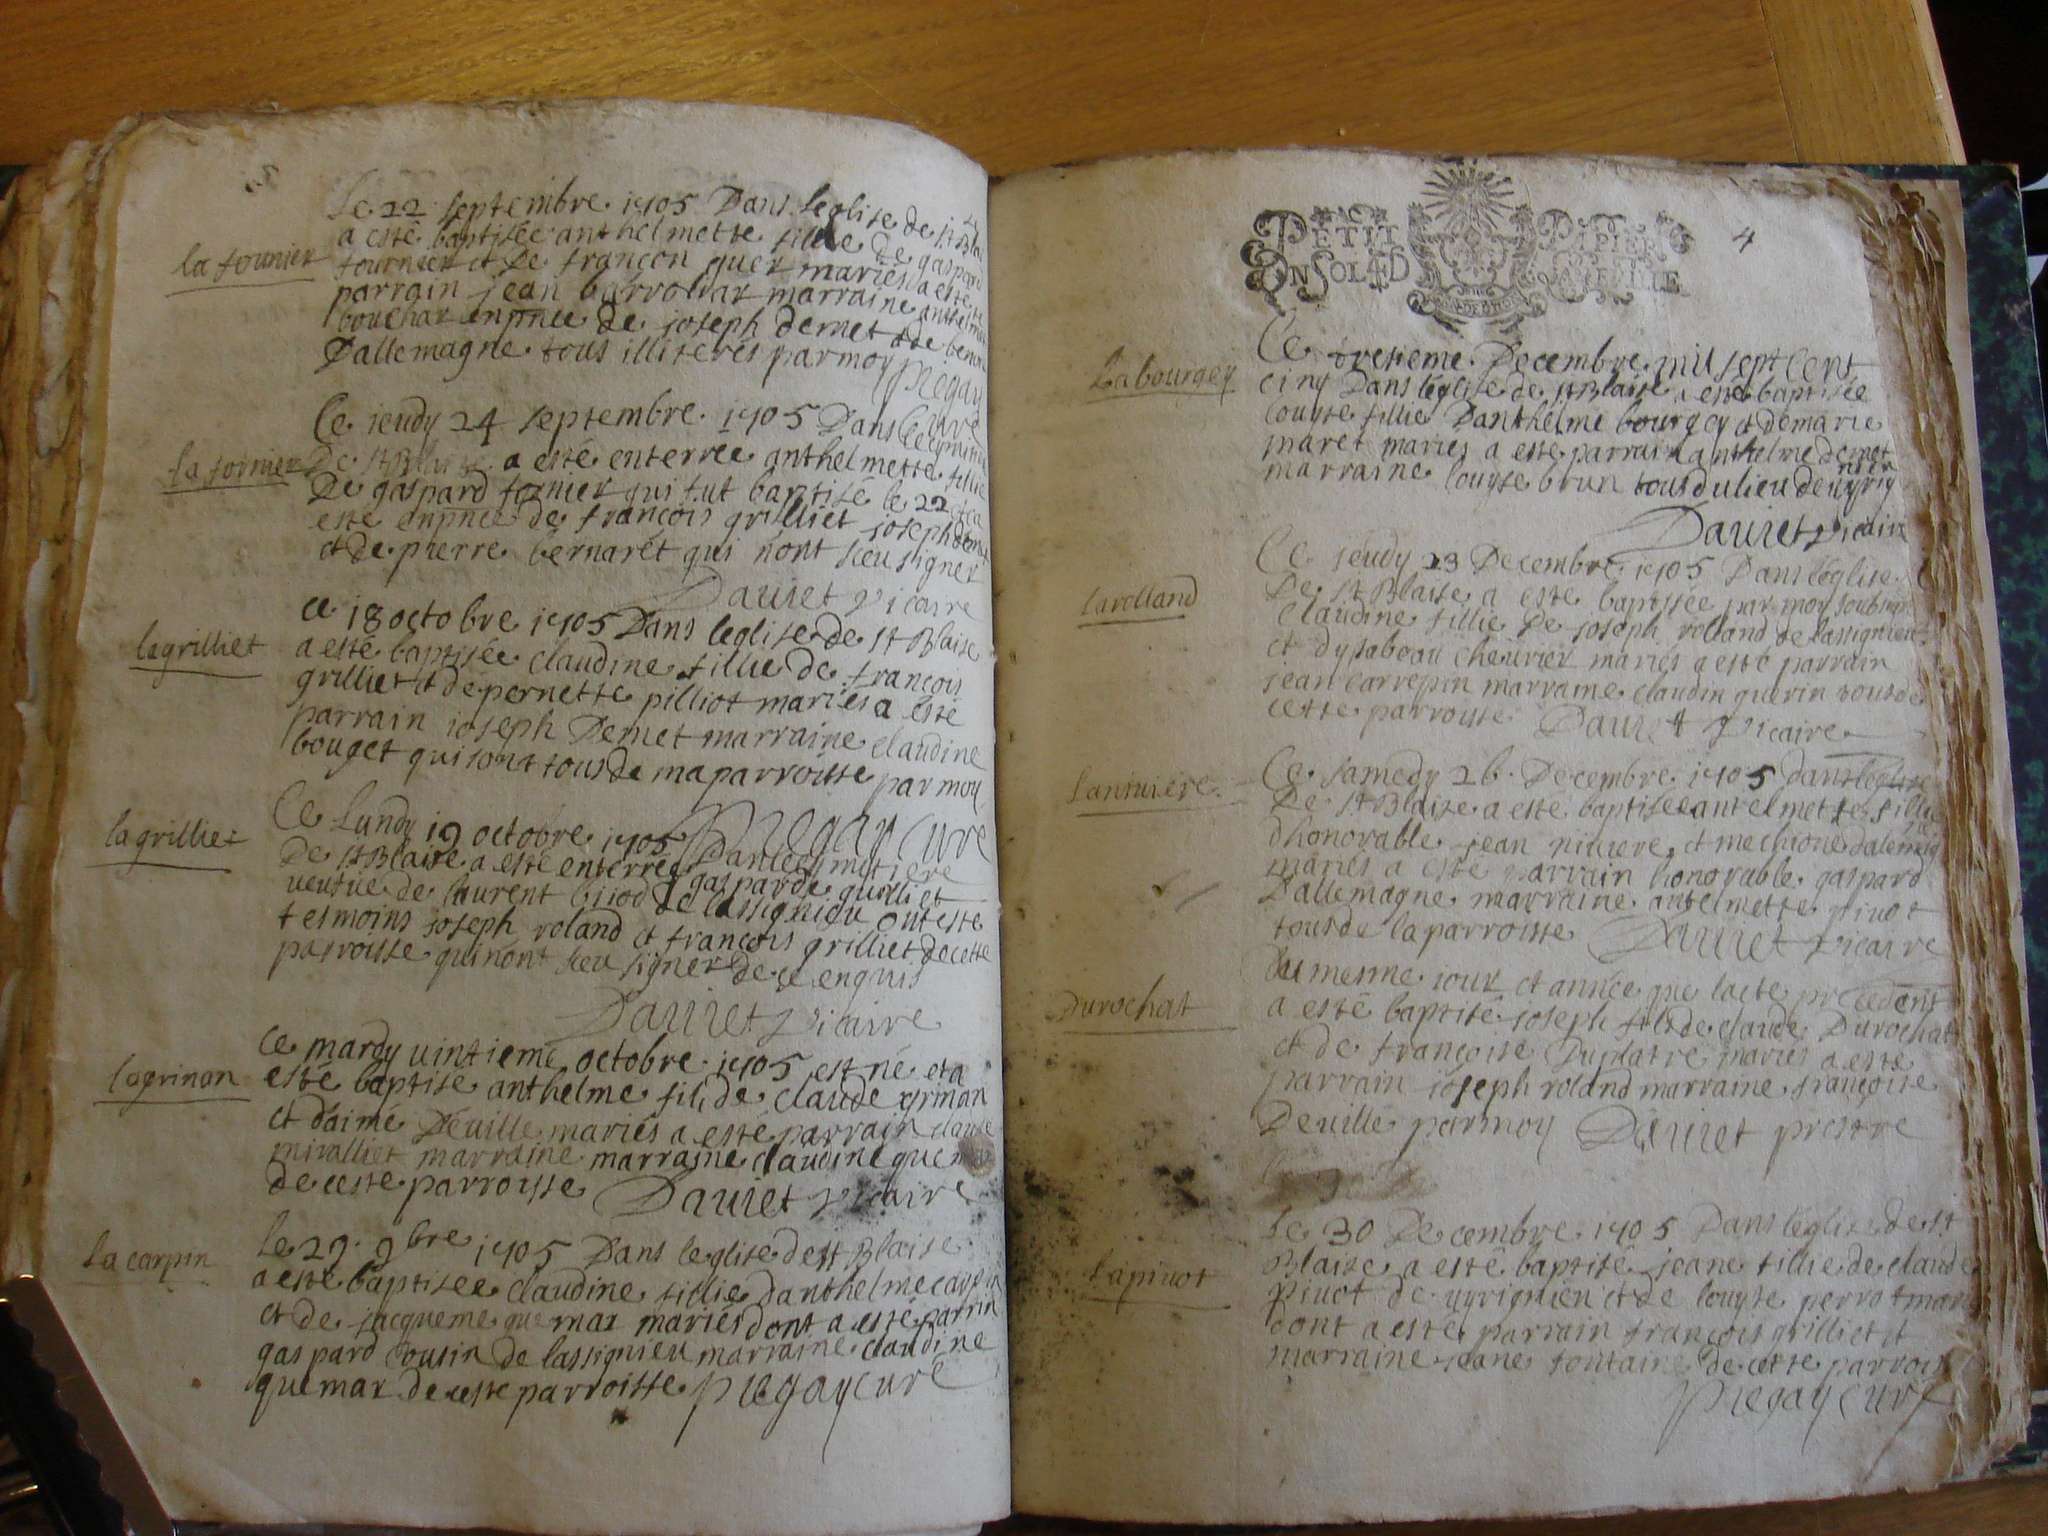 Le 22 septembre 1705 Dans leglise de st Blai
a esté baptisée anthelmette fillie de gaspard
la fournier
fournier et De françon quer mariés a esté
parrain jean barrollar marraine anthelme
bouchar enpnce de joseph demet et de beno
Dallemagne tous illiterés par moy
pregay curé
Ce jeudy 24 septembre 1705 Dans le cymitiere
la fornier
De st Blaise a esté enterrée anthelmette fillie
De gaspard fornier qui fut baptisé le 22 et a
esté enpnce de françois grilliet joseph demet
et de pierre bernaret qui nont sceu signer
Dauiet vicaire
ce 18 octobre 1705 Dans leglise de st Blaise
la grilliet
a esté baptisée claudine fillie de françois
grilliet et de pernette pilliot mariés a esté
parrain joseph Demet marraine claudine
bouget qui sont tous de ma parroisse par moy
pregay curé
Ce Lundy 19 octobre 1705 Dans le cymitiere
la grilliet
De st Blaise a esté enterrée gasparde grilliet
ueufue de laurent bijod de lassignieu ont esté
tesmoins joseph roland et françois grilliet de cette
parroisse qui nont sceu signer de ce enquis
Dauiet vicaire
ce mardy uintieme octobre 1705 est né et a
la grinan
esté baptise anthelme fils de claude grinan
et daimé Déuille mariés a esté parrain claude
miralliet marraine marraine claudine quem
de ceste parroisse Dauiet vicaire
Le 29 9bre 1705 Dans leglise de st Blaise
la carpin
a esté baptisée claudine fillie danthelme carpin
et de jacqueme quemar mariés dont a esté parrin
gaspard cousin de lassignieu marraine claudine
quemar de ceste parroisse pregay curé
4
PETIT PAPIER
UN SOL 4 D LA FEUILLE
Ce tresieme Decembre mil sept Cent
La bourgey
cinq Dans léglise de st Blaise a esté baptisée
Louyse fillie Danthelme bourgey et de marie
maret mariés a esté parrain anthelme demet
marraine louyse brun tous du lieu de uyrignien
Dauiet vicaire
Ce jeudy 23 Decembre 1705 Dans léglise
La rolland
De st Blaise a esté baptisée par moy soubsigné
Claudine fillie De joseph rolland de lassignieu
et dysabeau cheurier mariés a esté parrain
jean carrepin marraine claudin guerin tous de
cette parroisse Dauiet vicaire
Ce samedy 26 Decembre 1705 dans leglise
La niuiere
De st Blaise a esté baptisée antelmette fillie
dhonorable jean niuiere et me
mariés a esté parrain honorable gaspard
Dallemagne marraine antelmette piuot
tous de la parroisse Dauiet vicaire
Du mesme iour et année que lacte précedent
Durochat
a esté baptisé joseph fils de claude Durochat
et de françoise Duplatre mariés a esté
parrain joseph roland marraine françoise
Deuille par moy Dauiet prestre
Le 30 Decembre 1705 Dans léglise de st
La piuot
Blaise a esté baptisé jeane fillie de claude
Piuot de uyrignien et de louyse perrot mar
dont a esté parrain françois grilliet et
marraine jeane fontaine de cette parrois
pregay curé